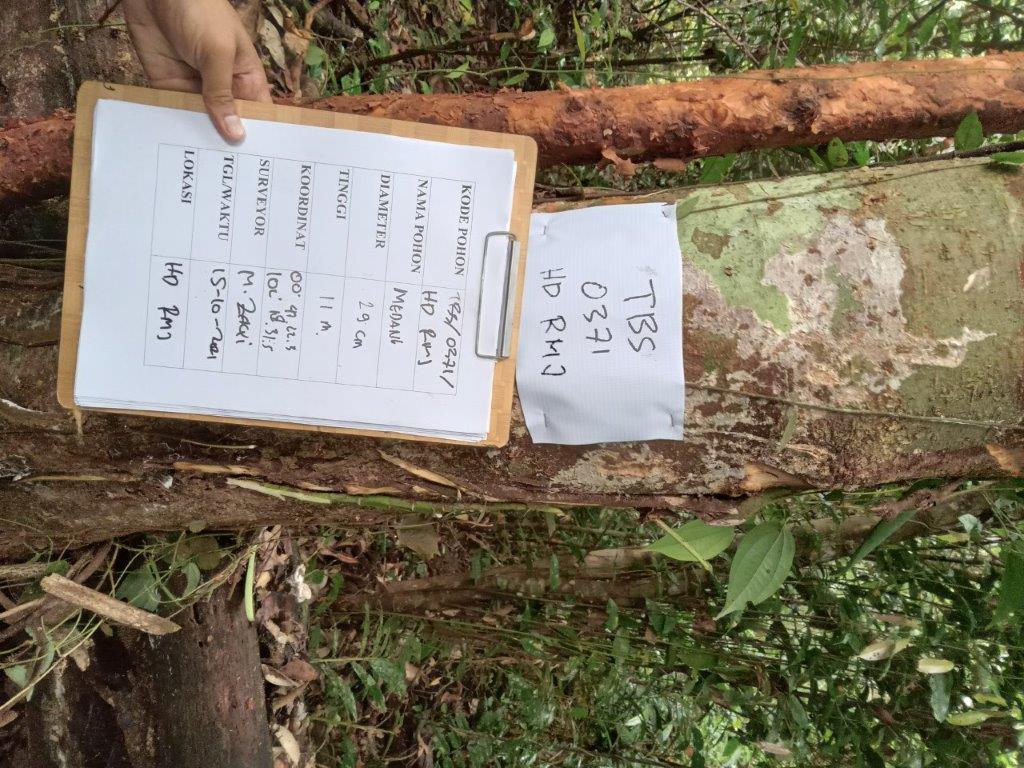 TBS
0371
HD RMJ
KODE POHON TBS/0371/
HD RMJ
NAMA POHON MEDANG
DIAMETER 29 cm
TINGGI 11 m.
KOORDINAT 00°
SURVEYOR M. ZAQI
TGL/WAKTU 15-10-2021
LOKASI HD RMJ